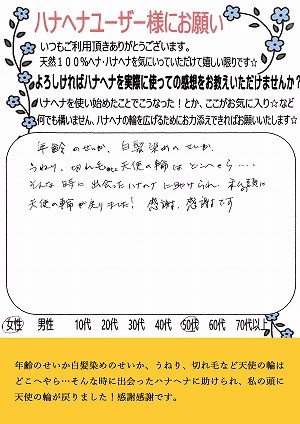 ハナヘナユーザー様にお願い
いつもご利用頂きありがとうございます。
天然100%ヘナ・ハナヘナを気にいっていただけて嬉しい限りです☆
よろしければハナヘナを実際に使っての感想をお教えいただけませんか?
ハナヘナを使い始めたことでこうなった!とか、ここがお気に入り☆など
何でも構いません、ハナヘナの輪を広げるためにお力添えできればお願いいたします☆
年齢のせいか、白髪染めのせいか、
うねり、切れ毛など天使の輪はどこへやら….
そんな時に出会ったハナヘナに助けられ、私の頭に
天使の輪が戻りました! 感謝、感謝です
女性 男性 10代 20代 30代 40代 50代 60代 70代以上
年齢のせいか白髪染めのせいか、うねり、切れ毛など天使の輪は
どこへやら…そんな時に出会ったハナヘナに助けられ、私の頭に
天使の輪が戻りました!感謝感謝です。